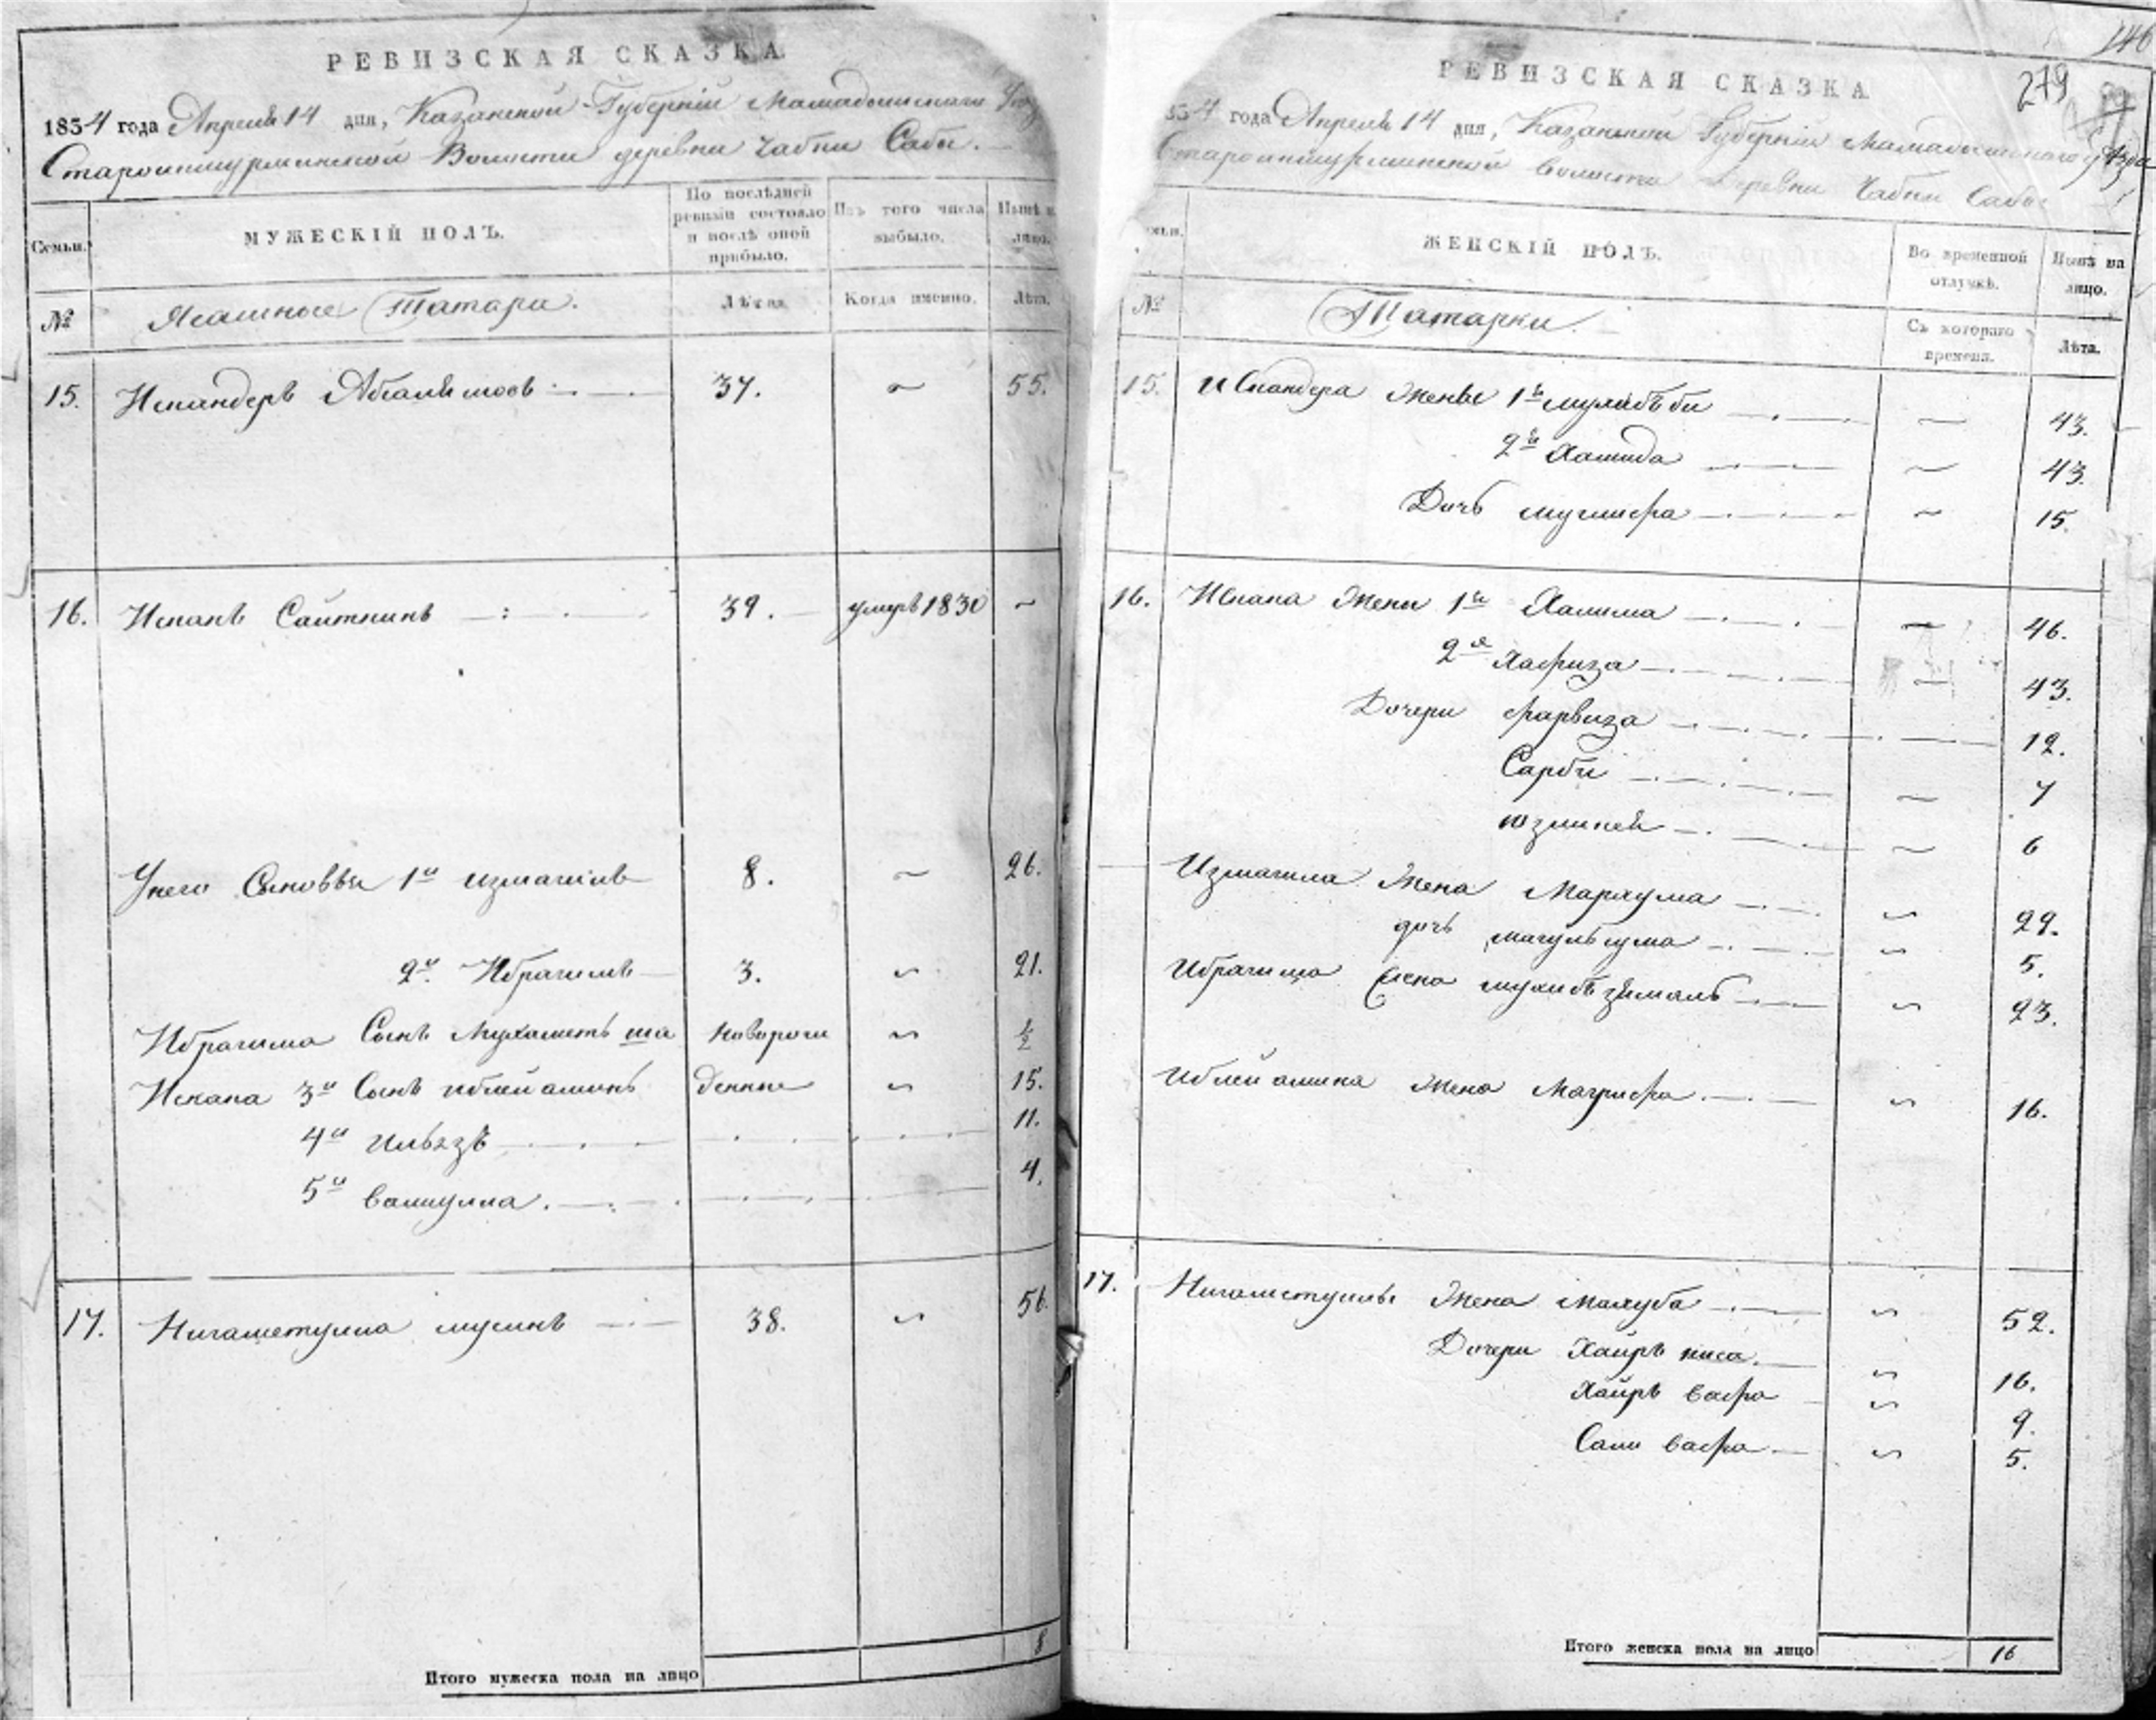 РЕВИЗСКАЯ СКАЗКА
1854 года Апреля 14 дня, Казанской Губерніи Мамадышскаго
Волости деревни Чабки Сабы.
Семьи.
МУЖЕСКІЙ ПОЛЪ.
По послѣдней ревизіи состояло и послѣ оной прибыло.
Изъ того числа выбыло.
Нынѣ на лицо.
№
Ясашные Татара.
Лѣта.
Когда именно.
Лѣта.
15. Искандеръ 37. 55.
16. Искакъ Саиткинъ 39. умеръ 1830
У него Сыновья 1й Измагилъ 8. 26.
2й Ибрагимъ 3. 21.
Ибрагима Сынъ Мухаметь ша новорож 1/2
Искака 3й Сынъ денные 15.
4й 11.
5й Валиулла. 4.
17. Нигаметулла Мусинъ 38. 56.
Итого мужеска пола на лицо 8
146
279
РЕВИЗСКАЯ СКАЗКА
54 года Апреля 14 дня, Казанской Губерніи Мамадышскаго уѣзда
волости деревни Чабки Сабы
№
ЖЕНСКІЙ ПОЛЪ.
Во временной отлучкѣ.
Нынѣ на лицо.
Татарки.
Съ котораго времени.
Лѣта.
15. Искандера Жены 1я 43.
2я Хамида 43.
Дочь 15.
16. Искака Жены 1я Халима 46.
2я Хафиза 43.
Дочери Фарвиза 12.
Сарби 7
6
Измагила Жена Мархума 29.
дочь 5.
Ибрагима Жена 23.
Жена 16.
17. Нигаметуллы Жена Махуба 52.
Дочери Хаиръ ниса. 16.
Хаиръ вафа 9.
Сали вафа 5.
Итого женска пола на лицо 16